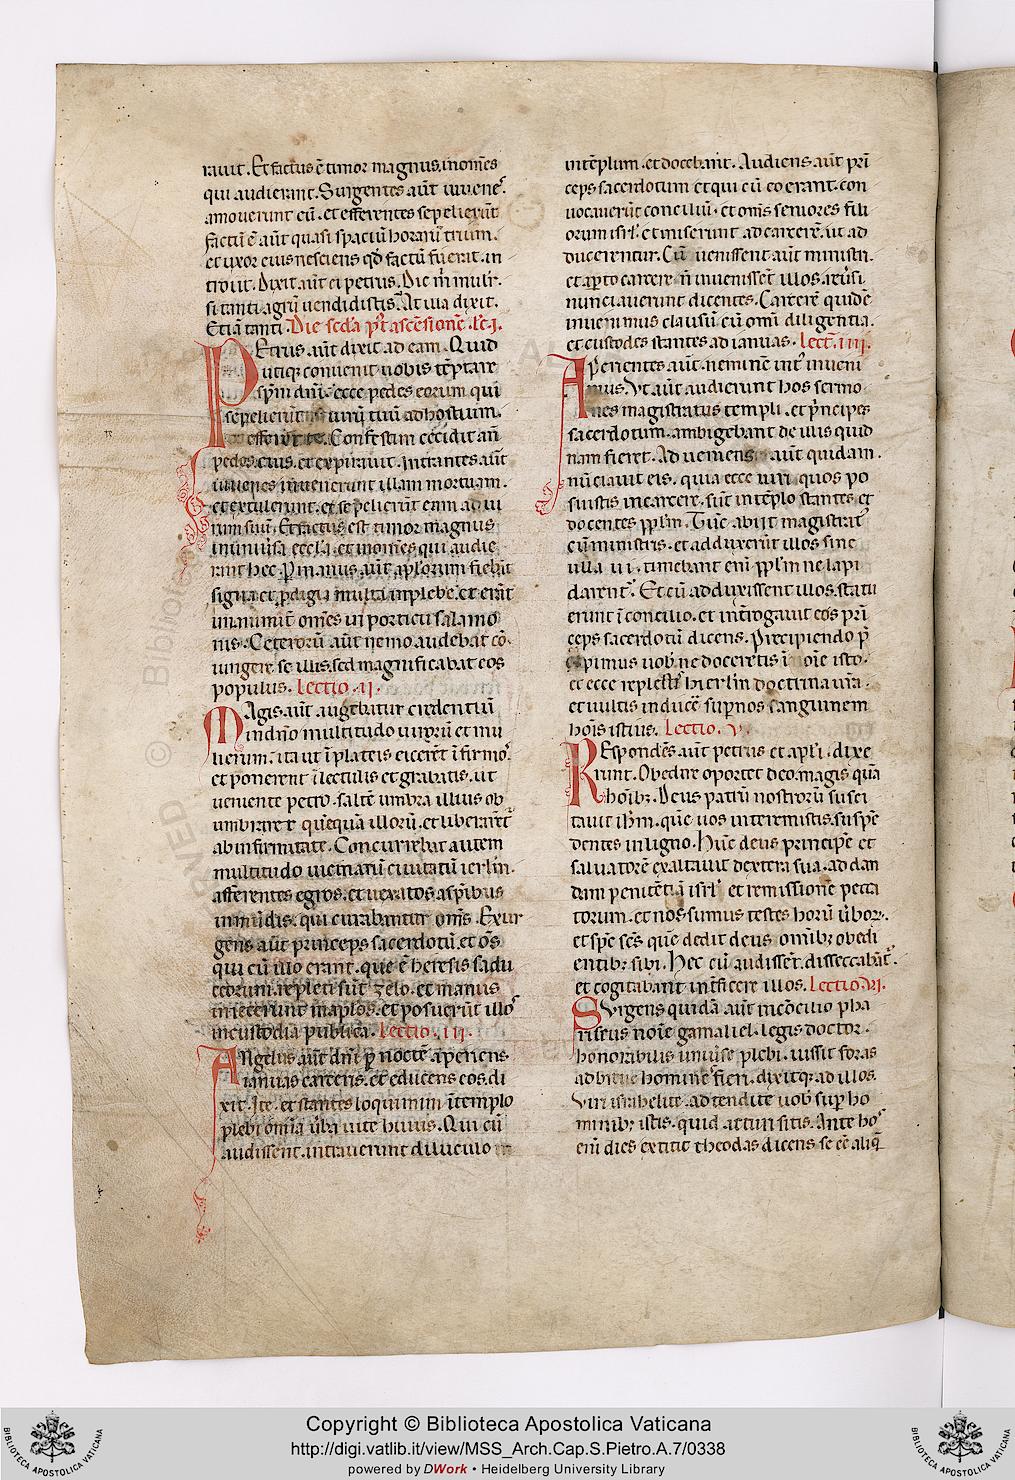 rauit. Et factus ē timor magnus. in om̄es
qui audierant. Surgentes aūt iuuenes
amouerunt eū. et efferentes sepelierūt
factū ē aūt quasi spaciū horarū trium.
et uxor eius nesciens qd̄ factū fuerit. in
troiuit. Dixit aūt ei petrus. Dic m̄ mulr̄
si tanti agrū uendidistis. At illa dixit.
Etiā tanti. Die scd̄a pꝰt ascēsionē. lc̄. I.
PEtrus. aūt dixit ad eam. Quid
utiqꝫ conuenit uobis tēptare
spm̄ dnī. ecce pedes eorum qui
sepelierūt uirū tuū ad hostium.
efferūt te. Confestim cecidit an̄
pedes eius. et expirauit. Intrantes aūt
iuuenes inuenerunt illam mortuam.
et extulerunt. et sepelierūt eam ad ui
rum suū. Et factus est timor magnus
in uniuersa eccl̄a. et in om̄es qui audie
rant hec. Per manus aūt apl̄orum fiebāt
signa et prodigia multa in plebe. et erāt
unanimit̄ om̄es in porticu salamo
nis. Ceterorū aūt nemo audebat cō
iungere se illis. sed magnificabat eos
populus. Lectio. ii.
MAgis. aūt augebatur credentiū
in dn̄o multitudo uirorū et mu
lierum. ita ut ī plateis eicerēt īfirmos
et ponerent ī lectulis et grabatis. ut
ueniente petro. saltē umbra illius ob
umbraret quēquā illorū. et liberarēt̄
ab infirmitate. Concurrebat autem
multitudo uicinarū ciuitatū ierlm̄.
afferentes egros. et uexatos a spiritibus
inmūdis. qui curabantur om̄s. Exur
gens aūt princeps sacerdotū. et om̄s
qui cū illo erant. que ē heresis sadu
ceorum. repleti sūt zelo. et manus
iniecerunt in apl̄os. et posuerūt illos
in custodia publica. Lectio. iii.
ANgelus aūt dnī per noctē aperiens
ianuas carceris. et educens eos. di
xit. Ite. et stantes loquimini ī templo
plebi omnia uerba uite huius. Qui cū
audissent. intrauerunt diluculo
in tēplum. et docebant. Audiens aūt prī
ceps sacerdotum et qui cū eo erant. con
uocauerūt conciliū. et om̄s seniores fili
orum isrl̄. et miserunt ad carcerē. ut ad
ducerentur. Cū uenissent aūt ministri
et apto carcere n̄ inuenissēt illos. reūsi
nunciauerunt dicentes. Carcerē quidē
inuenimus clausū cū omī diligentia.
et custodes stantes ad ianuas. Lect̄. iiii.
APerientes aūt. neminē int̄ inueni
mus. Ut aūt audierunt hos sermo
nes magistratus templi. et principes
sacerdotum. ambigebant de illis quid
nam fieret. Adueniens aūt quidam.
nūciauit eis. quia ecce uiri quos po
suistis in carcere. sūt in tēplo stantes et
docentes ppl̄m. Tūc abijt magistrat
cū ministris. et adduxerūt illos sine
illa ui. timebant enī ppl̄m ne lapi
darent̄. Et cū adduxissent illos. statu
erunt ī concilio. et intrrogauit eos prī
ceps sacerdotū dicens. Precipiendo p̄
cepimus uob̄. ne doceretis ī noīe isto.
et ecce replestis hierlm̄ doctrina ur̄a.
et uultis inducē sup nos sanguinem
hoīs istius. Lectio. V.
REspondēs aūt petrus et apl̄i. dixe
runt. Obedire oportet deo. magis quā
hoībꝫ. Deus patrū nostrorū susci
tauit ih̄m. quē uos interemistis. suspē
dentes in ligno. Hūc deus principē et
saluatorē exaltauit dextera sua. ad dan
dam penitētiā isrl̄ et remissionē pecca
torum. et nos sumus testes horū ūborꝫ.
et sp̄c sc̄s quē dedit deus omībꝫ obedi
entibꝫ sibi. Hec cū audissēt. dissecabāt̄.
et cogitabant intēficere illos. Lectio. VI.
SUrgens quidā aūt in cōcilio pha
riseus noīe gamaliel. legis doctor.
honorabilis uniūse plebi. iussit foras
ad breue homines fieri. dixitqꝫ ad illos.
Viri israhelite. adtendite uob̄ sup ho
minibꝫ istis. quid acturi sitis. Ante hos
enī dies extitit theodas dicens se eē aliquē
Copyright © Biblioteca Apostolica Vaticana
http://digi.vatlib.it/view/MSS_Arch.Cap.S.Pietro.A.7/0338
powered by DWork • Heidelberg University Library
BIBLIOTECA APOSTOLICA VATICANA
BIBLIOTECA APOSTOLICA VATICANA